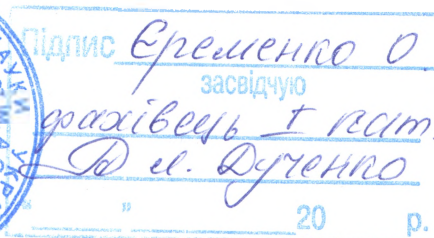 Підпис Єременко О.
засвідчую
фахівець I кат.
Дученко
" " 20 р.